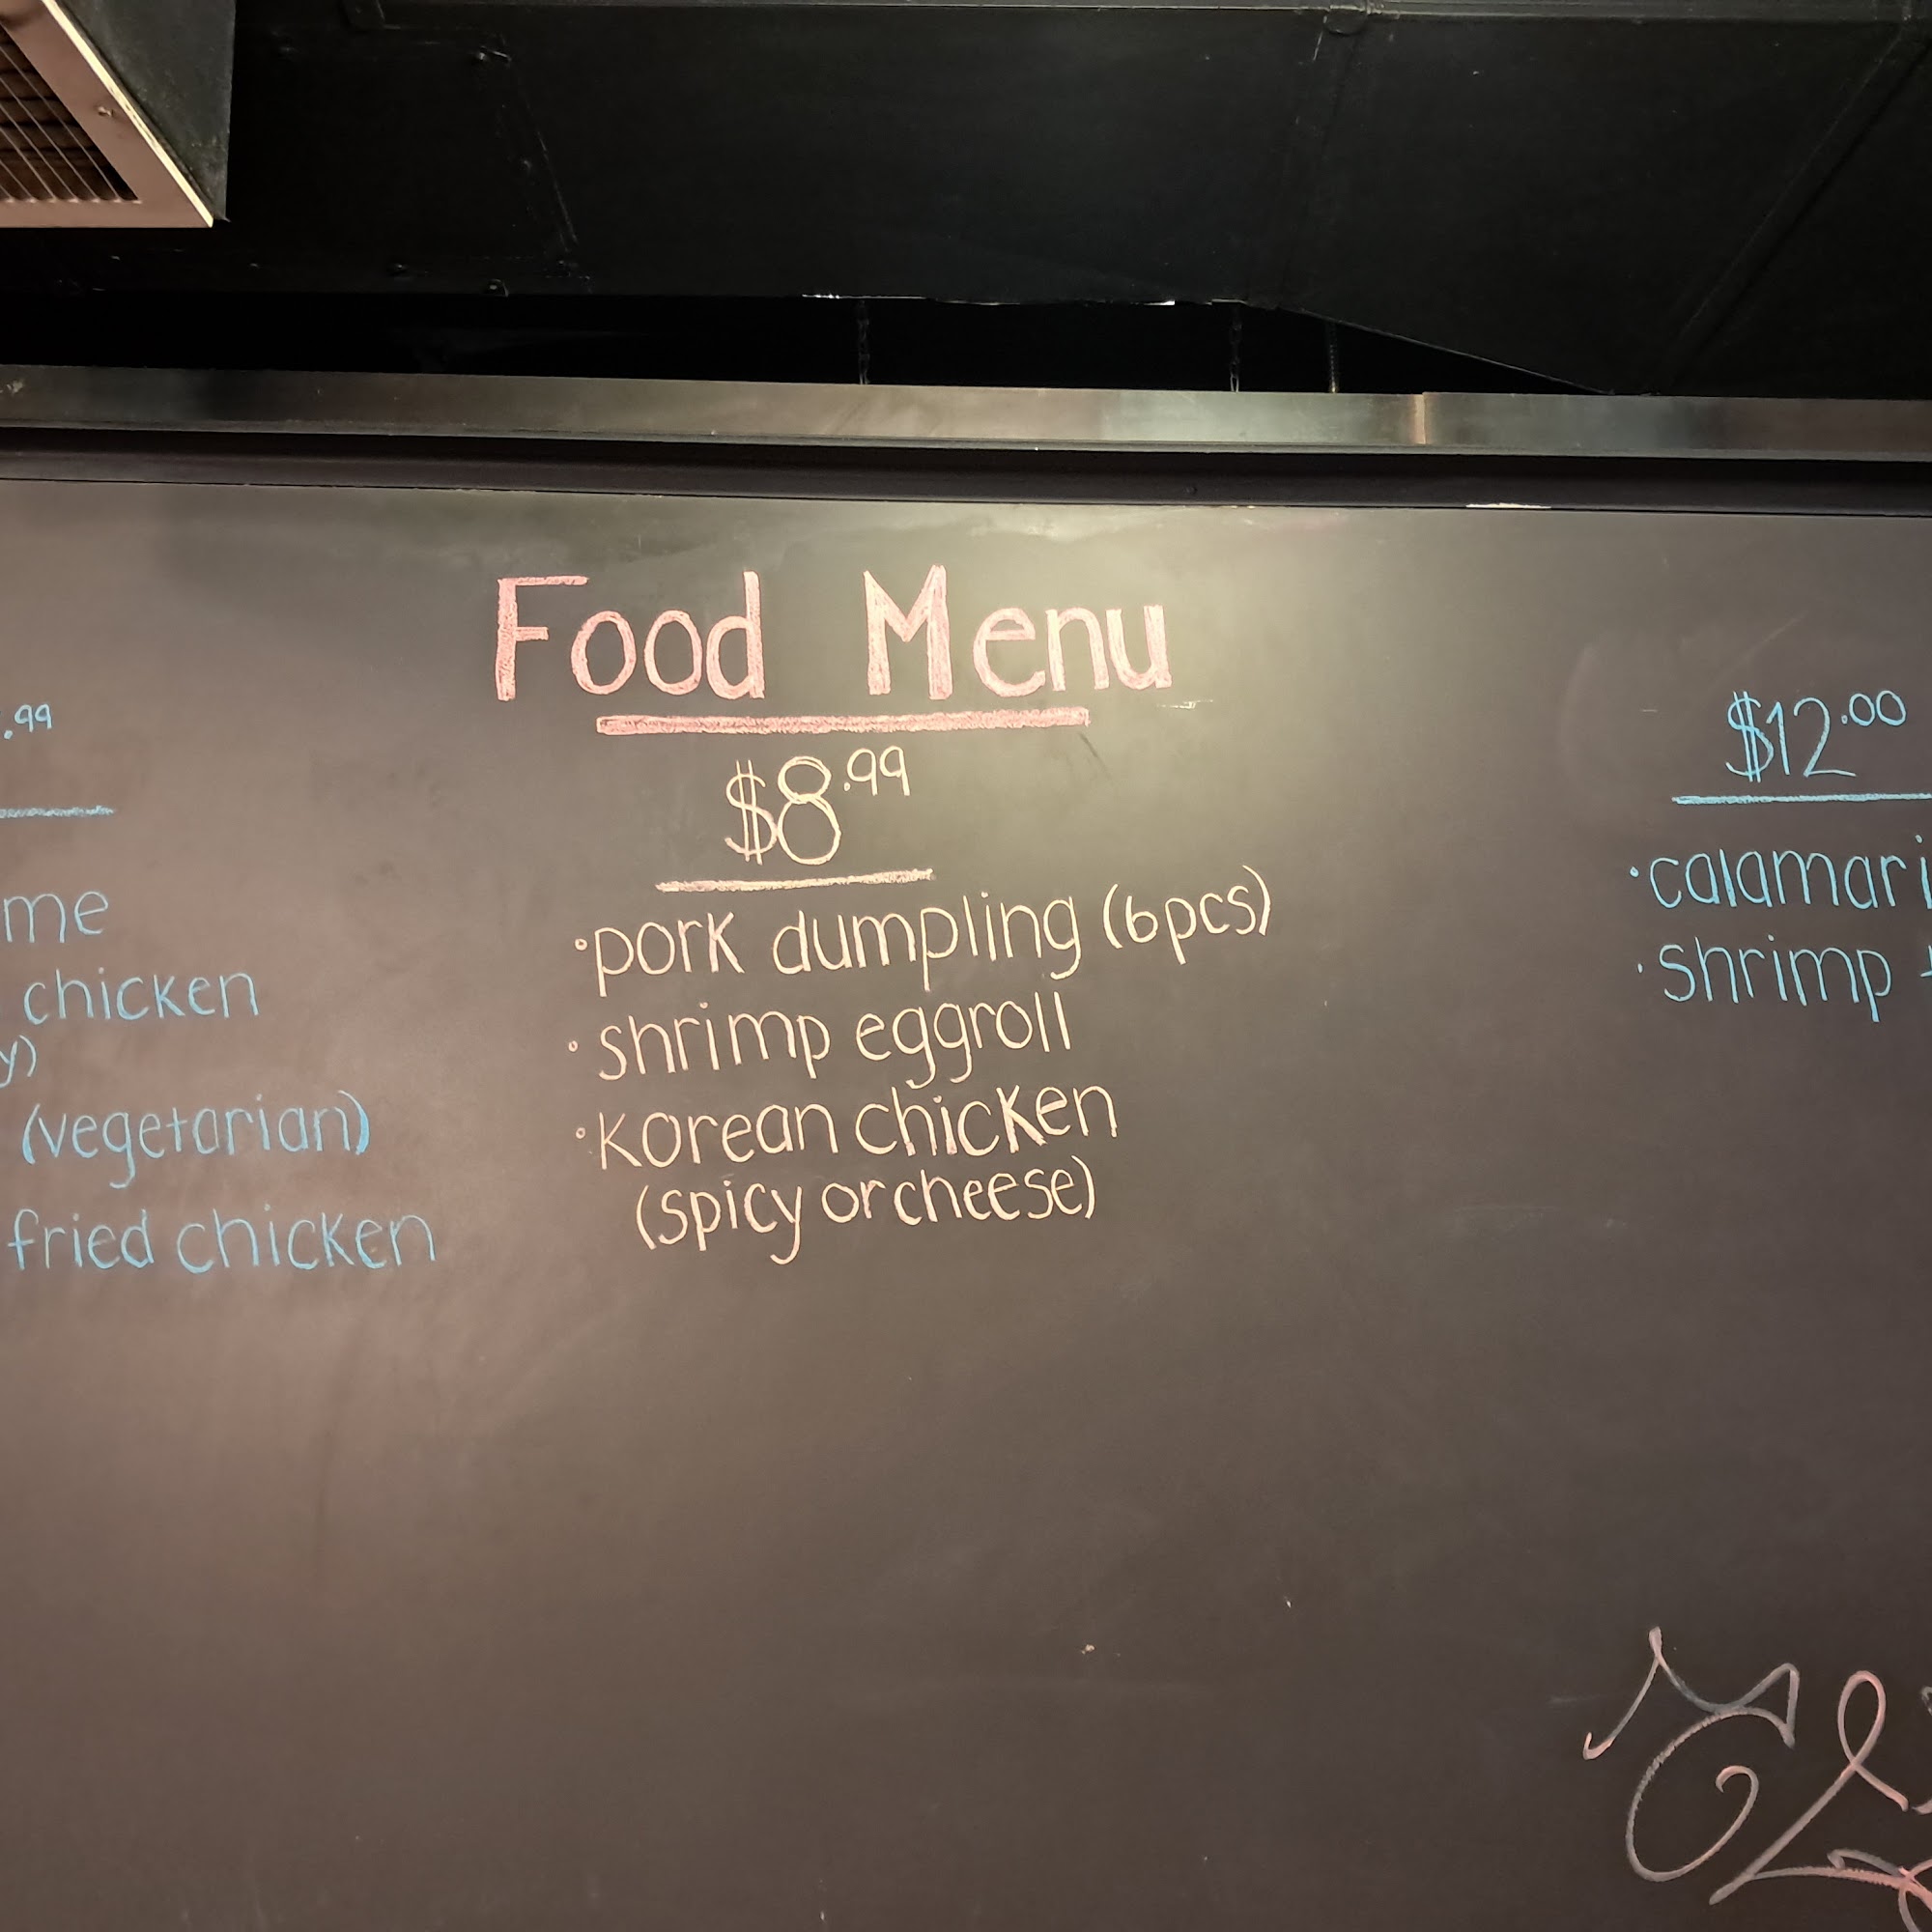 Food Menu
.99
me
chicken
y)
(vegetarian)
fried chicken
$8.99
•pork dumpling (6pcs)
•shrimp eggroll
•Korean chicken
(spicy or cheese)
$12.00
•calamari
•shrimp